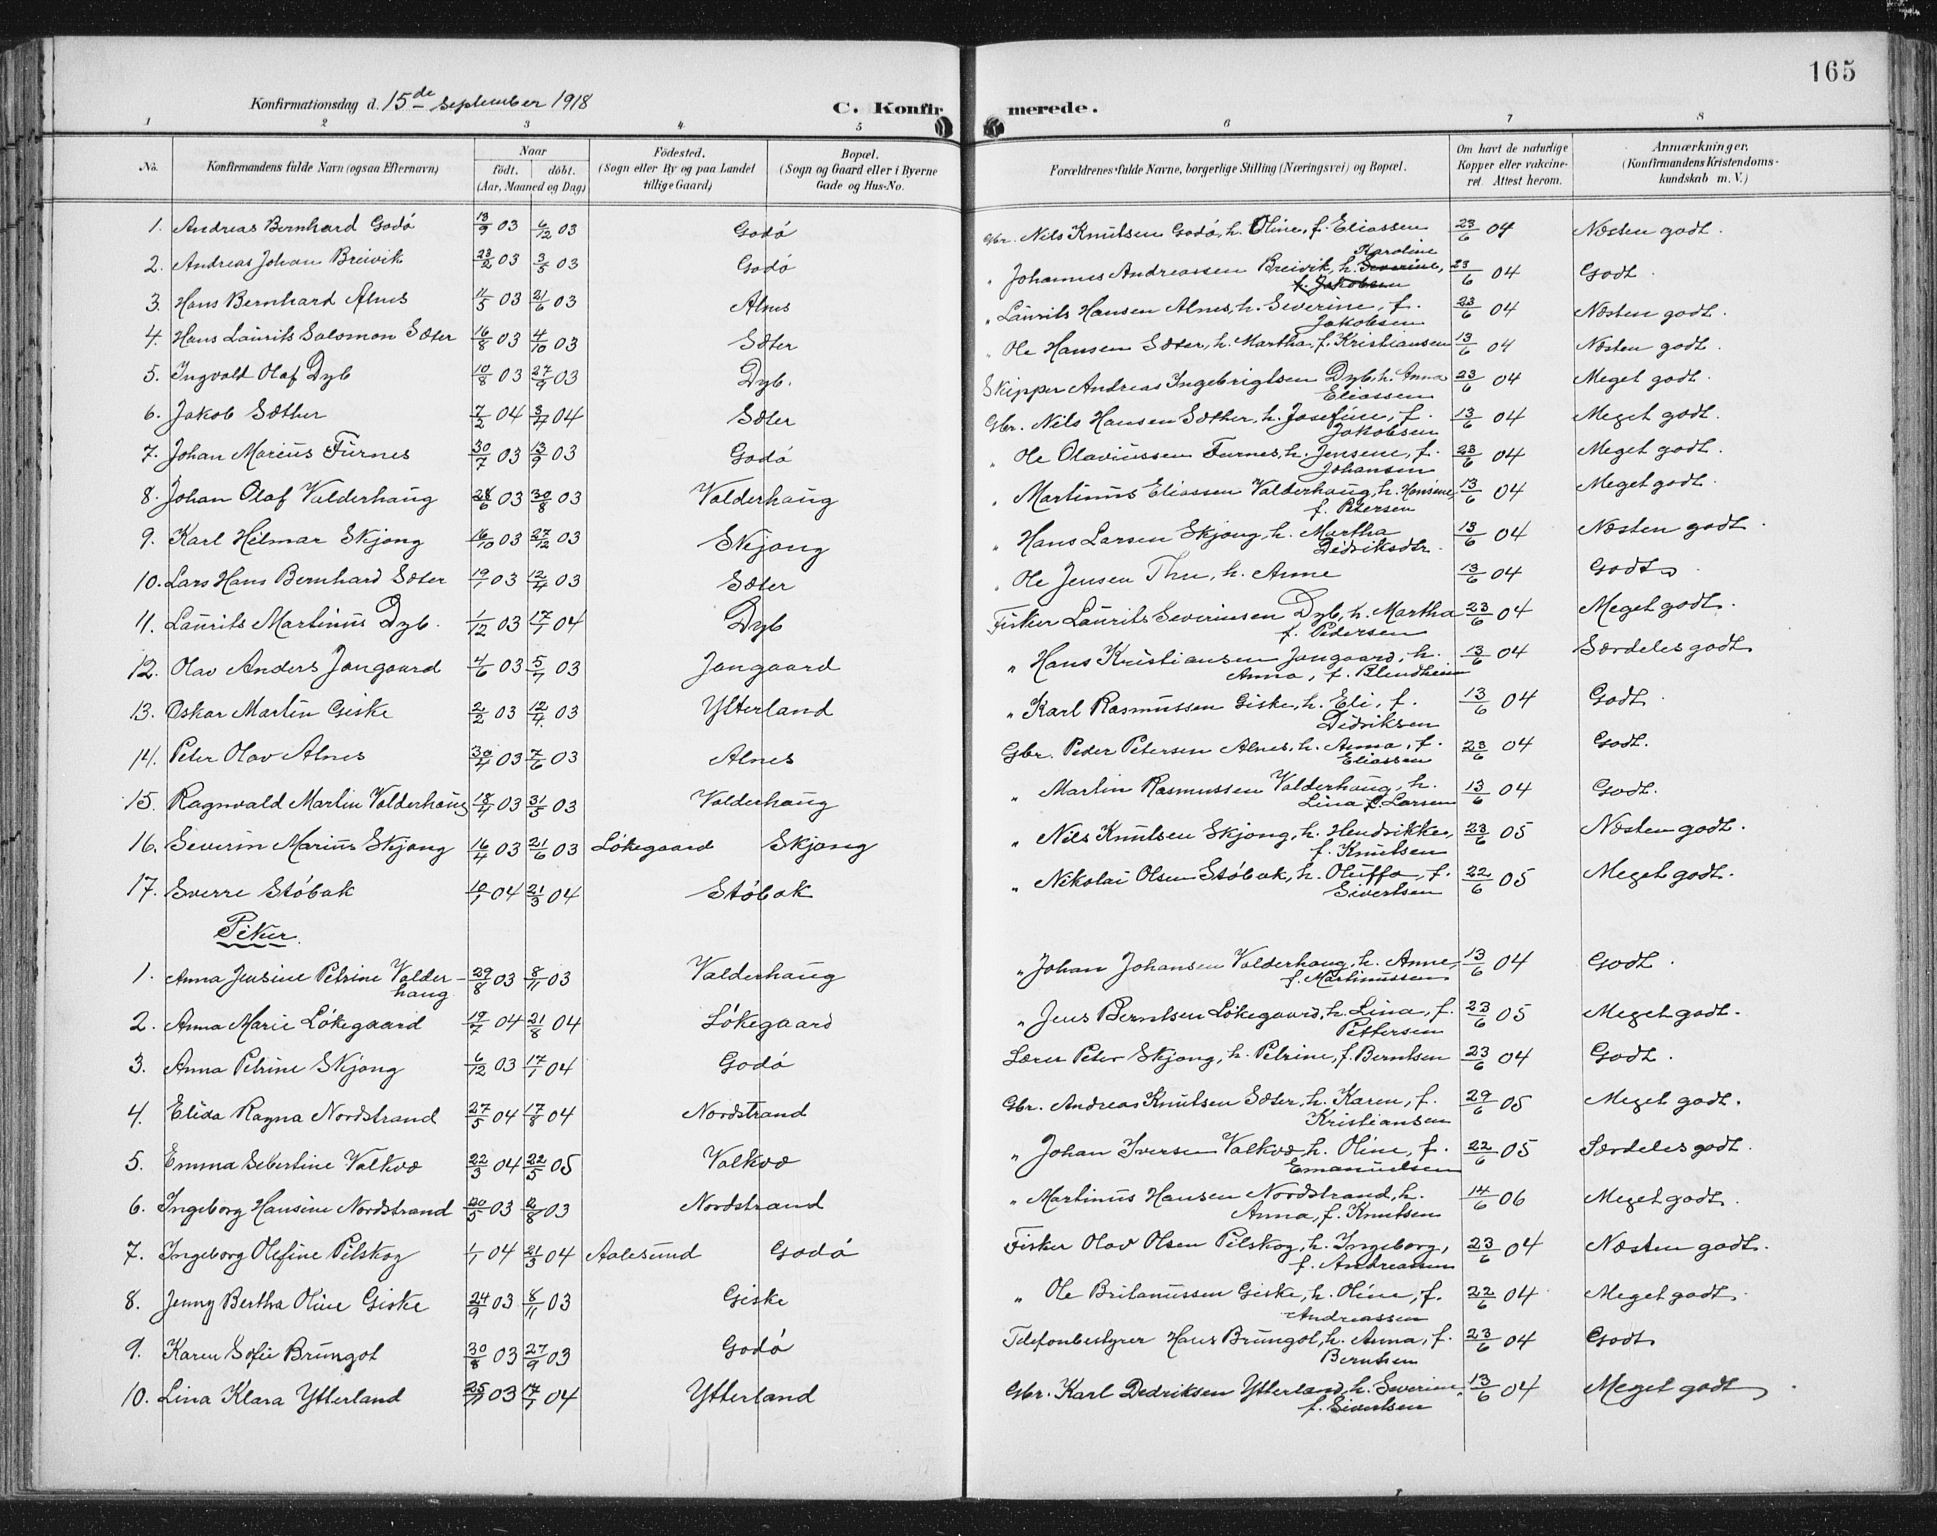 165
Konfirmationsdag d. 15de september 1918
C. Konfirmerede.
1 2 3 4 5 6 7 8
No. Konfirmandens fulde Navn (ogsaa Efternavn) Naar födt. döbt. (Aar, Maaned og Dag) Födested. (Sogn eller By og paa Landet tillige Gaard) Bopæl. (Sogn og Gaard eller i Byerne Gade og Hus-No. Forældrenes fulde Navne, borgerlige Stilling (Næringsvei) og Bopæl. Om havt de naturlige Kopper eller vakcineret. Attest herom. Anmærkninger. (Konfirmandens Kristendomskundskab m. V.)
1. Andreas Bernhard Godö 13/9 03 6/12 03 Godö Gbr. Nils Knutsen Godö, h. Oline, f. Eliassen 23/6 04 Næsten godt.
2. Andreas Johan Breivik 23/2 03 3/5 03 Godö " Johannes Andreassen Breivik, h. Severine, Karoline f. Jakobsen 23/6 04 Godt.
3. Hans Bernhard Alnes 11/5 03 21/6 03 Alnes " Laurits Hansen Alnes, h. Severine, f. Jakobsen 23/6 04 Næsten godt.
4. Hans Laurits Salomon Sæter 16/8 03 4/10 03 Sæter " Ole Hansen Sæter, h. Martha, f. Kristiansen 13/6 04 Næsten godt.
5. Ingvald Olaf Dyb 10/8 03 27/9 03 Dyb. Skipper Andreas Ingebrigtsen Dyb, h. Anna Eliassen 23/6 04 Meget godt.
6. Jakob Sæther 7/2 04 3/4 04 Sæter Gbr. Nils Hansen Sæther, h. Josefine, f. Jakobsen 13/6 04 Meget godt.
7. Johan Marius Furnes 30/7 03 13/9 03 Godö " Ole Olaviussen Furnes, h. Jensene, f. Johansen 23/6 04 Meget godt.
8. Johan Olaf Valderhaug 28/6 03 30/8 03 Valderhaug " Martinus Eliassen Valderhaug, h. Hansine, f. Petersen 13/6 04 Meget godt.
9. Karl Hilmar Skjong 16/10 03 27/12 03 Skjong " Hans Larsen Skjong, h. Martha Dedriksdtr. 13/6 04 Næsten godt.
10. Lars Hans Bernhard Sæter 19/1 03 12/4 03 Sæter " Ole Jensen Thu, h. Anne 13/6 04 Godt
11. Laurits Martinus Dyb. 1/12 03 17/1 04 Dyb Fisker Laurits Severinsen Dyb, h. Martha f. Pedersen 23/6 04 Meget godt.
12. Olav Anders Jangaard 4/6 03 5/7 03 Jangaard " Hans Kristiansen Jangaard, h. Anna, f. Blindheim 13/6 04 Særdeles godt
13. Oskar Martin Giske 2/2 03 12/4 03 Ytterland " Karl Rasmussen Giske, h. Eli, f. Didriksen 13/6 04 Godt.
14. Peter Olav Alnes 30/4 03 7/6 03 Alnes Gbr. Peder Petersen Alnes, h. Anna, f. Eliassen 23/6 04 Godt.
15. Ragnvald Martin Valderhaug 18/4 03 31/5 03 Valderhaug " Martin Rasmussen Valderhaug, h. Lina f. Larsen 13/6 04 Godt.
16. Severin Marius Skjong 16/4 03 21/6 03 Lökegaard Skjong " Nils Knutsen Skjong, h. Hendrikke, f. Knutsen 23/6 05 Næsten godt.
17. Sverre Stöbak 10/1 04 21/3 04 Stöbak " Nikolai Olsen Stöbak, h. Oluffa, f. Sivertsen 22/6 05 Meget godt.
Piker.
1. Anna Jensine Petrine Valderhaug 29/8 03 8/11 03 Valderhaug " Johan Johansen Valderhaug, h. Anne, f. Martinussen 13/6 04 Godt.
2. Anna Marie Lökegaard 19/7 04 21/8 04 Lökegaard " Jens Berntsen Lökegaard, h. Lina, f. Pettersen 23/6 05 Meget godt.
3. Anna Petrine Skjong 6/12 03 17/1 04 Godö Lærer Peter Skjong, h. Petrine, f. Berntsen 23/6 04 Godt.
4. Elida Ragna Nordstrand 27/5 04 17/8 04 Nordstrand Gbr. Andreas Knutsen Sæter, h. Karen, f. Kristiansen 29/6 05 Meget godt.
5. Emma Sebertine Valkvæ 22/3 04 22/5 05 Valkvæ " Johan Iversen Valkvæ, h. Oline, f. Emanuelsen 22/6 05 Særdeles godt.
6. Ingeborg Hansine Nordstrand 20/5 03 2/8 03 Nordstrand " Martinus Hansen Nordstrand, h. Anna, f. Knutsen 14/6 06 Meget godt.
7. Ingeborg Olefine Pilskog 1/1 04 21/3 04 Aalesund Godö Fisker Olav Olsen Pilskog, h. Ingeborg, f. Andreassen 23/6 04 Næsten godt.
8. Jenny Bertha Oline Giske 24/9 03 8/11 03 Giske " Ole Britanussen Giske, h. Oline, f. Andreassen 22/6 04 Meget godt.
9. Karen Sofie Brungot 30/8 03 27/9 03 Godö Telefonbestyrer Hans Brungot, h. Anna, f. Berntsen 23/6 04 Godt
10. Lina Klara Ytterland 25/11 03 17/1 04 Ytterland Gbr. Karl Dedriksen Ytterland, h. Severine, f. Sivertsen 13/6 04 Meget godt